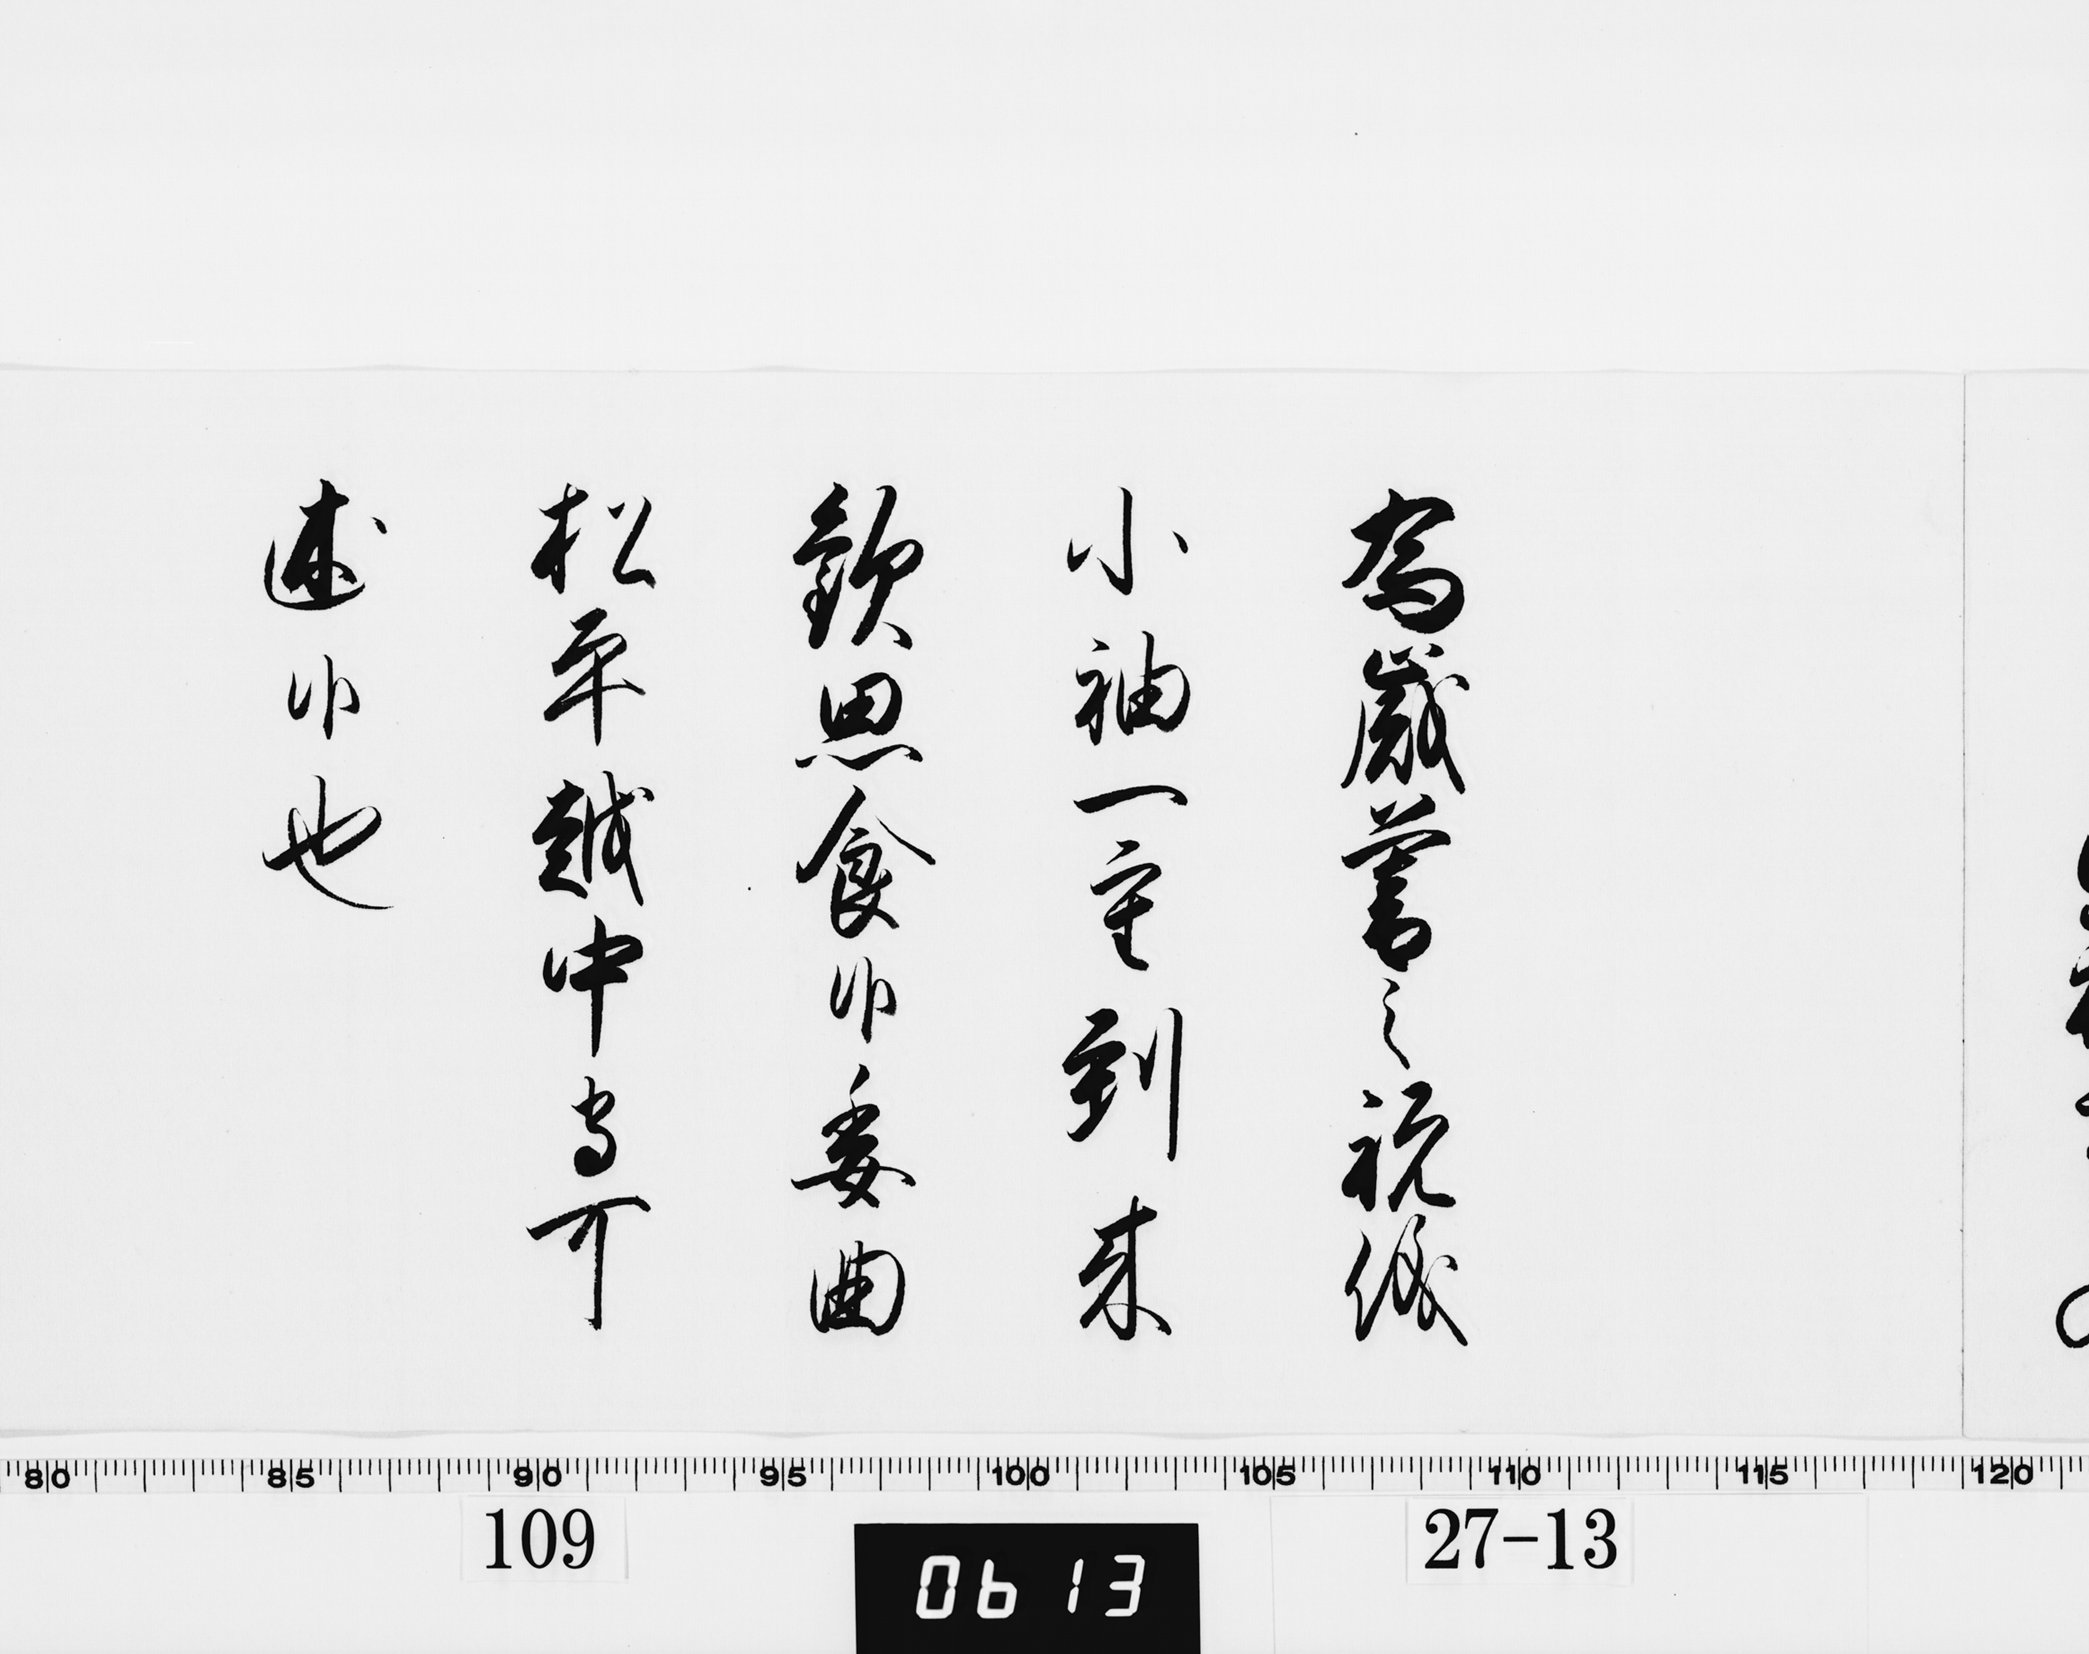 為歳暮之祝儀
小袖一重到来
歓思食候委曲
松平越中守可
述候也
80 85 90 95 100 105 110 115 120
109
0613
27-13